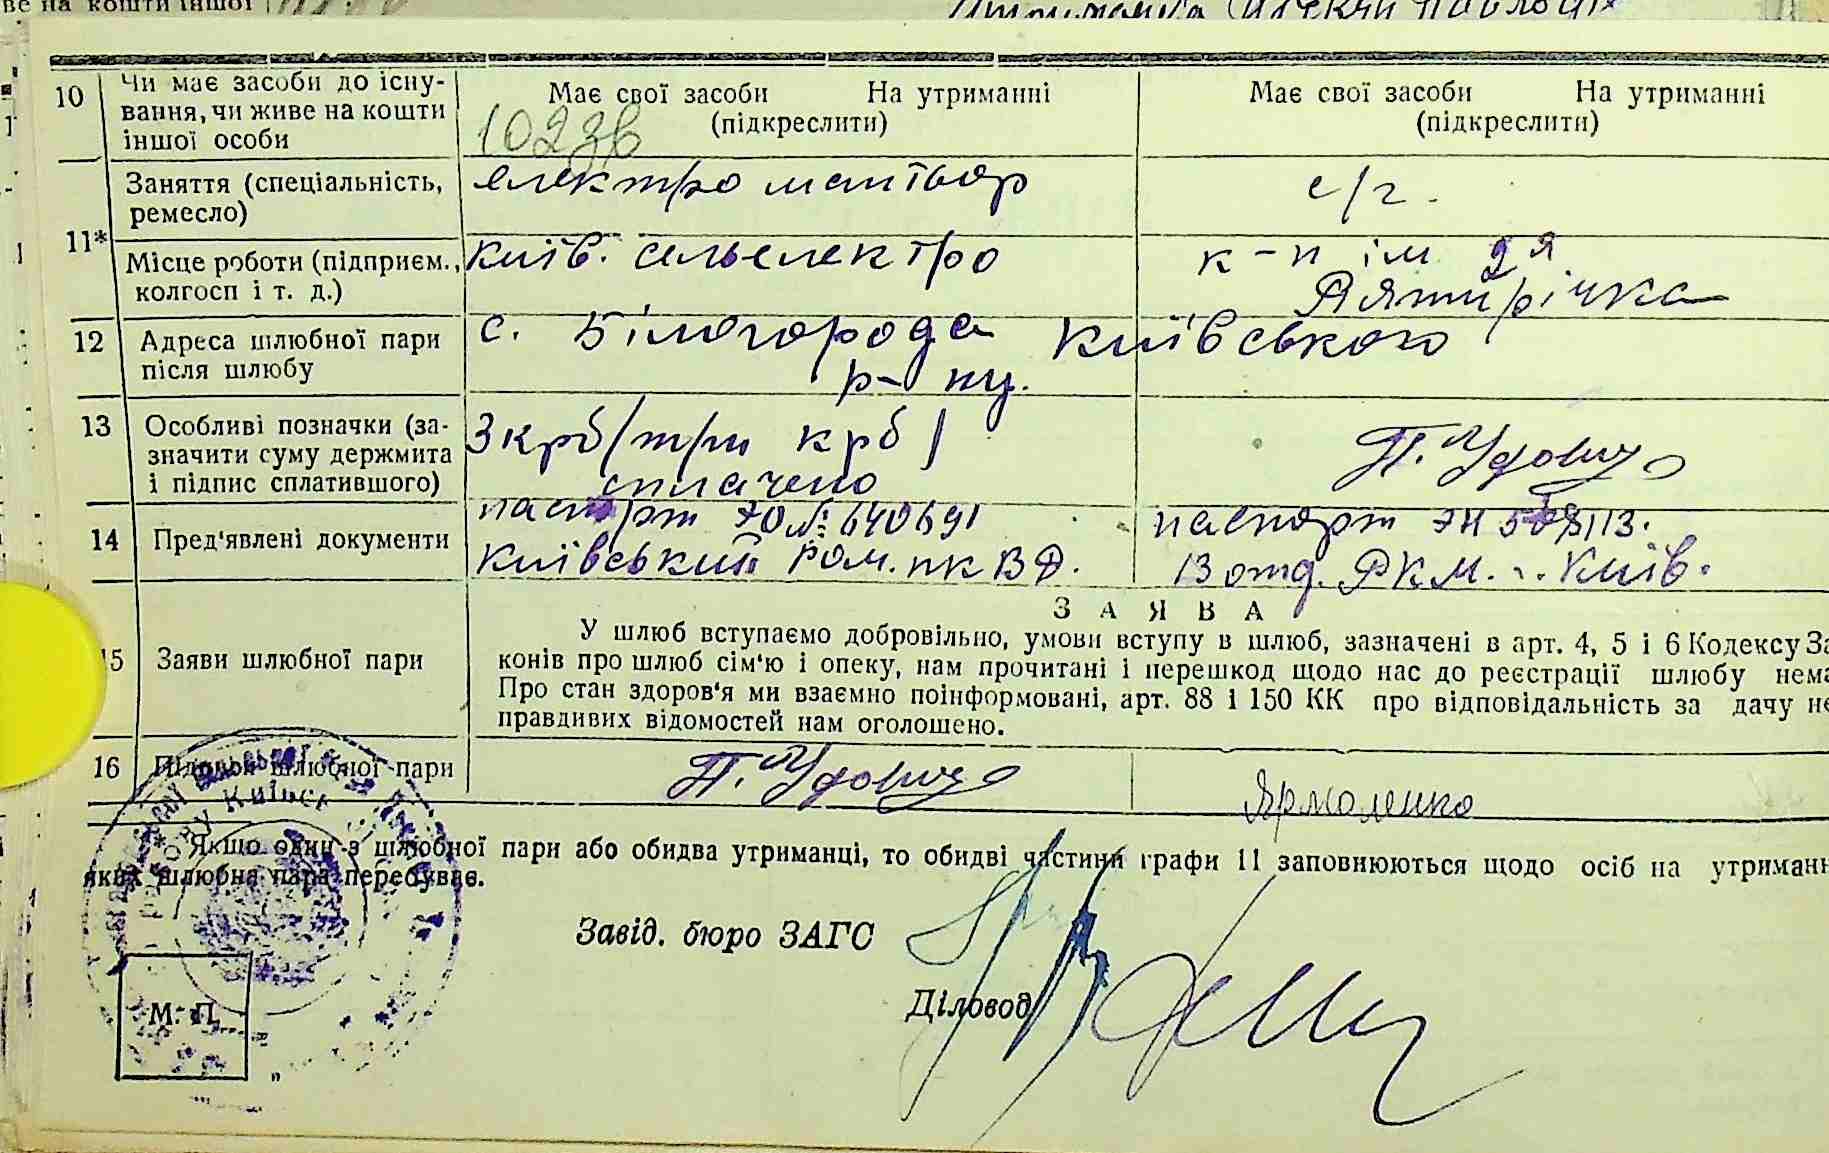 ве на кошти іншої
10 Чи має засоби до існу-
вання, чи живе на кошти
іншої особи
Має свої засоби На утриманні
(підкреслити)
1023в
Має свої засоби На утриманні
(підкреслити)
11*
Заняття (спеціальність,
ремесло)
електромантьор
с/г.
Місце роботи (підприєм.,
колгосп і т. д.)
Київ. сельелектро
к-п ім 2я
Пятирічка
12 Адреса шлюбної пари
після шлюбу
с. Білогорода Київського
р-ну.
13 Особливі позначки (за-
значити суму держмита
і підпис сплатившого)
3 крб /три крб/
сплачено
П. Удовиц
14 Пред'явлені документи
паспорт № 640691
Київський
паспорт
13 отд. РКМ. Київ.
З А Я В А
15 Заяви шлюбної пари
У шлюб вступаємо добровільно, умови вступу в шлюб, зазначені в арт. 4, 5 і 6 Кодексу За
конів про шлюб сім'ю і опеку, нам прочитані і перешкод щодо нас до реєстрації шлюбу нема
Про стан здоров'я ми взаємно поінформовані, арт. 88 і 150 КК про відповідальність за дачу не
правдивих відомостей нам оголошено.
16 Підписи шлюбної пари
П. Удовиц
Ярмоленко
* Якщо один з шлюбної пари або обидва утриманці, то обидві частини графи 11 заповнюються щодо осіб на утриманн
яких шлюбна пара перебуває.
Завід. бюро ЗАГС
Діловод
М. П.